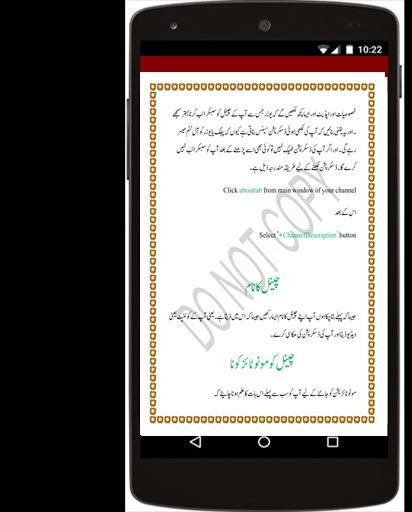 10:22
خصوصیات اور اپڈیٹ اور ایسا کچھ لکھیں گے کہ یوزر جس سے آپ کے چینل کو سبسکرائب کرنا بہتر سمجھے
۔اور یہ یقینی بنائیں کہ آپ کی لکھی ہوئی ڈسکرپشن سینس بناتی ہے کیوں کہ پبلک یا یوزر کو آل ٹائم میسر
رہے گی۔ اور اگر آپ کی ڈسکرپشن ٹھیک نہیں تو کوئی بھی اسے پڑھنے کے بعد آپ کو سبسکرائب نہیں
کرے گا۔ ڈسکرپشن لکھنے کے لیے طریقہ مندرجہ ذیل ہے۔
Click abouttab from main window of your channel
اس کے بعد
Select "+ChannelDescription" button
چینل کا نام
جیسا کہ پہلے بتا چکا ہوں آپ اپنے چینل کا نام ایسا رکھیں جیسا کہ اس میں ڈیٹا ہے۔ یعنی آپ کے کونٹینٹ یعنی
ویڈیو ڈیٹا اور آپ کی ڈسکرپشن کی عکاسی کرے۔
چینل کو مونوٹائز کونا
مونوٹائزیشن کو جاننے کے لیے آپ کو سب سے پہلے اس بات کا علم ہونا چاہیئے کہ
DO NOT COPY